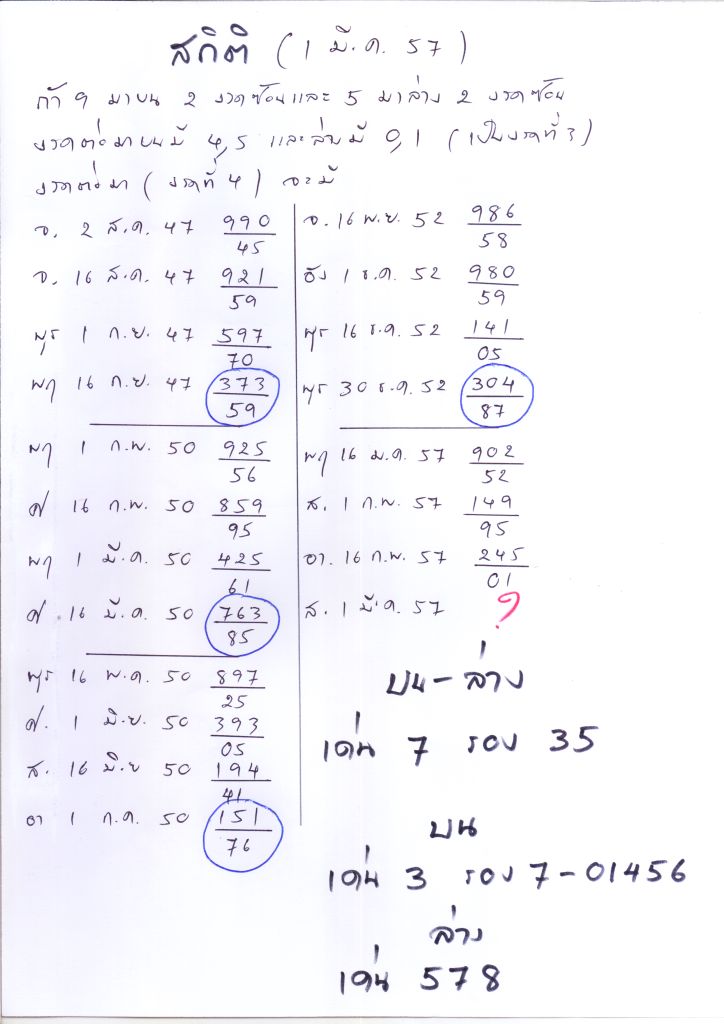 สถิติ (1 มี.ค. 57)
ถ้า 9 มาบน 2 งวดซ้อนและ 5 มาล่าง 2 งวดซ้อน
งวดต่อมาบนมี 4,5 และล่างมี 0,1 (เป็นงวดที่ 3)
งวดต่อมา (งวดที่ 4) จะมี
จ. 2 ส.ค. 47 990
45
จ. 16 ส.ค. 47 921
59
พุธ 1 ก.ย. 47 597
70
พฤ 16 ก.ย. 47 373
59
พฤ 1 ก.พ. 50 925
56
ศ 16 ก.พ. 50 859
95
พฤ 1 มี.ค. 50 425
61
ศ. 16 มี.ค. 50 763
85
พุธ 16 พ.ค. 50 897
25
ศ. 1 มิ.ย. 50 393
05
ส. 16 มิ.ย 50 194
41
อา 1 ก.ค. 50 151
76
จ. 16 พ.ย. 52 986
58
อัง 1 ธ.ค. 52 980
59
พุธ 16 ธ.ค. 52 141
05
พุธ 30 ธ.ค. 52 304
87
พฤ 16 ม.ค. 57 902
52
ส. 1 ก.พ. 57 149
95
อา. 16 ก.พ. 57 245
01
ส. 1 มี.ค. 57 ?
บน-ล่าง
เด่น 7 รอง 35
บน
เด่น 3 รอง 7-01456
ล่าง
เด่น 578